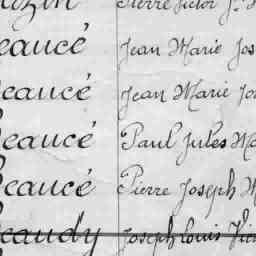 Pierre Victor J.
eaucé Jean Marie Jos
eaucé Jean Marie Jo
eaucé Paul Jules Ma
eaucé Pierre Joseph M
eaudy Joseph Louis Vic